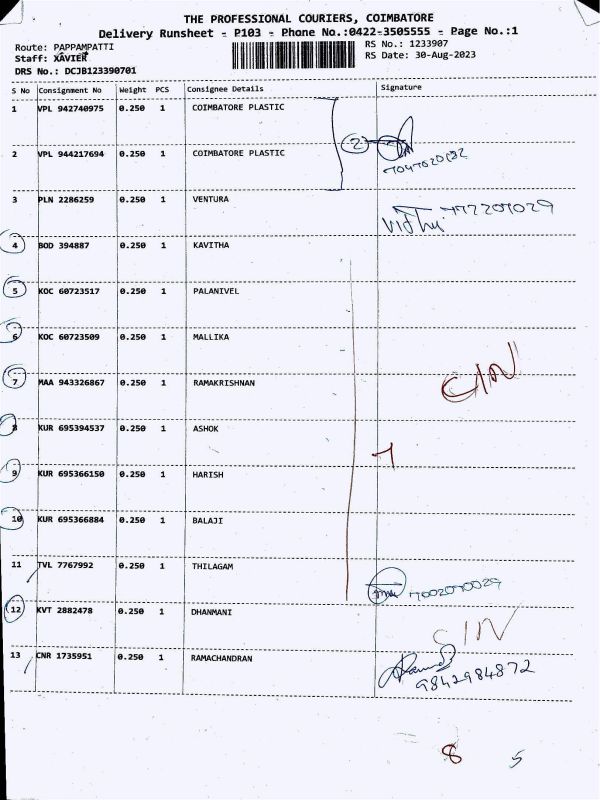 THE PROFESSIONAL COURIERS, COIMBATORE
Delivery Runsheet - P103 - Phone No.:0422-3505555 - Page No.:1
Route: PAPPAMPATTI
RS No.: 1233907
Staff: XAVIER
RS Date: 30-Aug-2023
DRS No.: DCJB123390701
S No Consignment No Weight PCS Consignee Details Signature
1 VPL 942740975 0.250 1 COIMBATORE PLASTIC
2
2 VPL 944217694 0.250 1 COIMBATORE PLASTIC
3 PLN 2286259 0.250 1 VENTURA
4 BOD 394887 0.250 1 KAVITHA
5 KOC 60723517 0.250 1 PALANIVEL
6 KOC 60723509 0.250 1 MALLIKA
7 MAA 943326867 0.250 1 RAMAKRISHNAN
8 KUR 695394537 0.250 1 ASHOK
7
9 KUR 695366150 0.250 1 HARISH
10 KUR 695366884 0.250 1 BALAJI
11 TVL 7767992 0.250 1 THILAGAM
12 KVT 2882478 0.250 1 DHANMANI
13 CNR 1735951 0.250 1 RAMACHANDRAN
9842984872
8 5